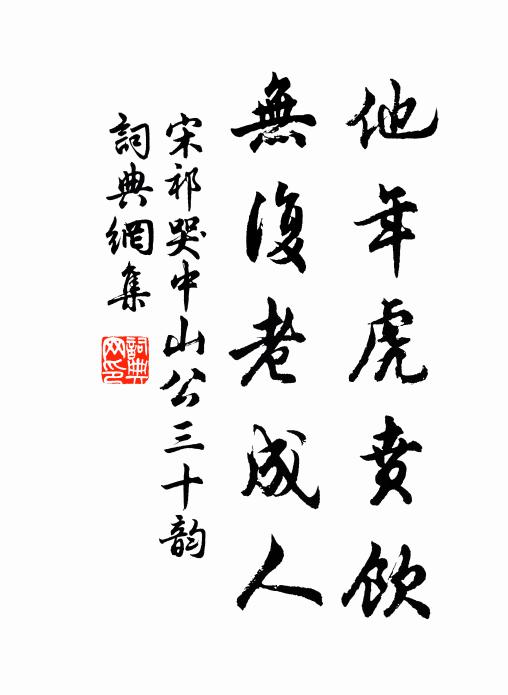 他年虎賁飲
無復老成人
宋祁哭中山公三十韵
詞典網集
詞典网印